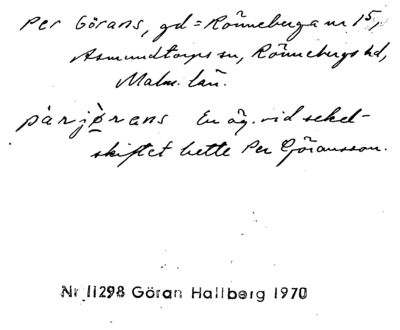 Per Görans, gd = Rönneberga nr 15,
Asmundtorps sn, Rönnebergs hd,
Malm. län.
pàrjö̀rans En äg. vid sekel-
skiftet hette Per Göransson.
Nr 11298 Göran Hallberg 1970